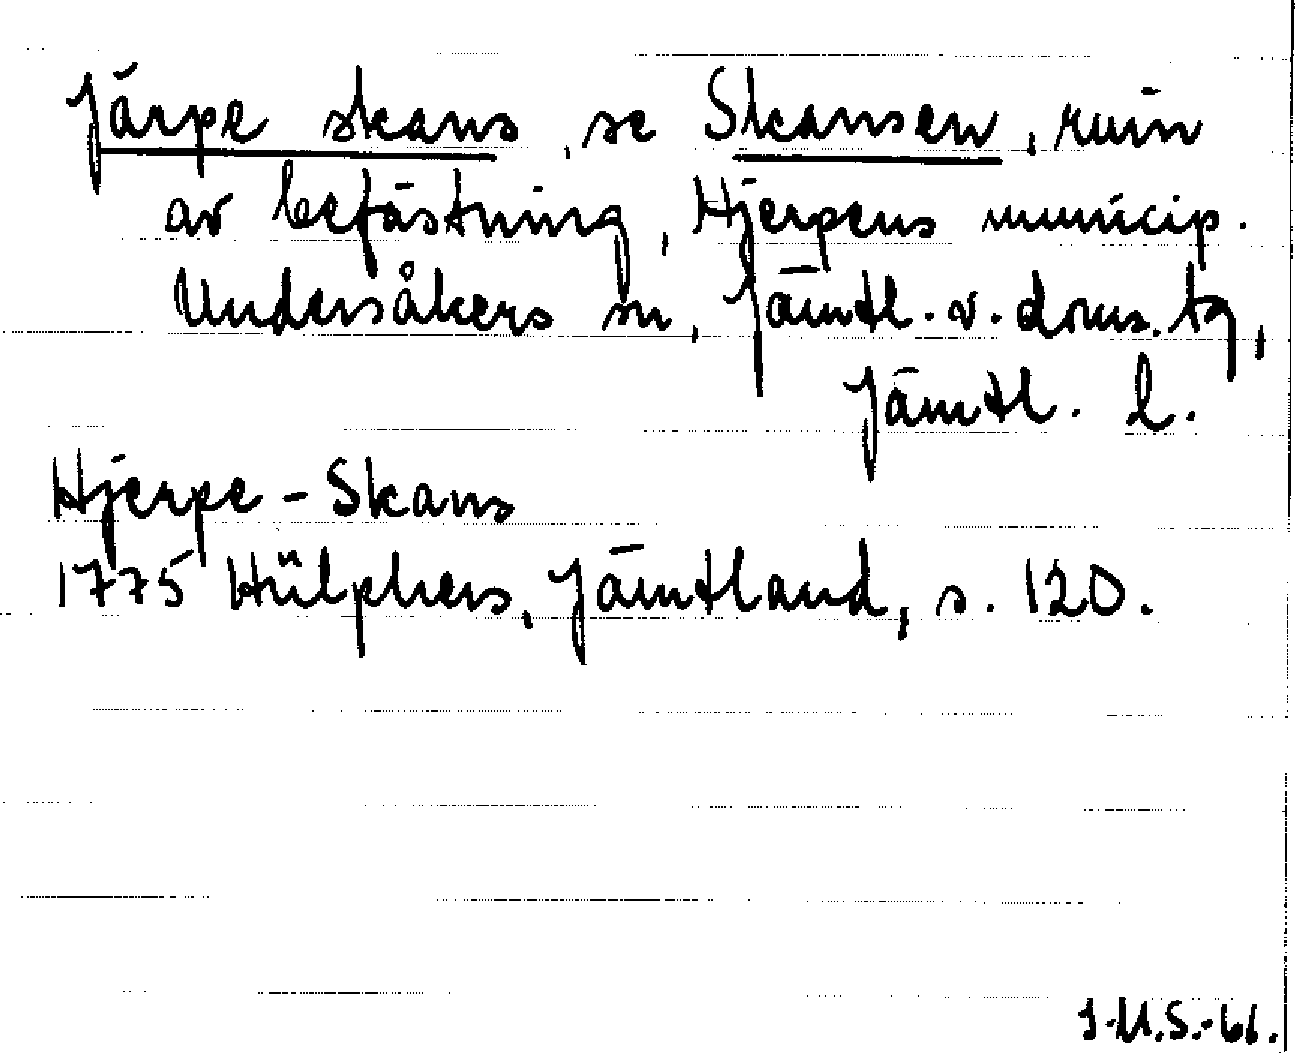 Järpe skans, se Skansen, ruin
av befästning, Hjerpens municip.
Undersåkers sn, Jämtl. v. doms. tg,
Jämtl. l.
Hjerpe-Skans
1775 Hülphers, Jämtland, s. 120.
J.U.S.-61.